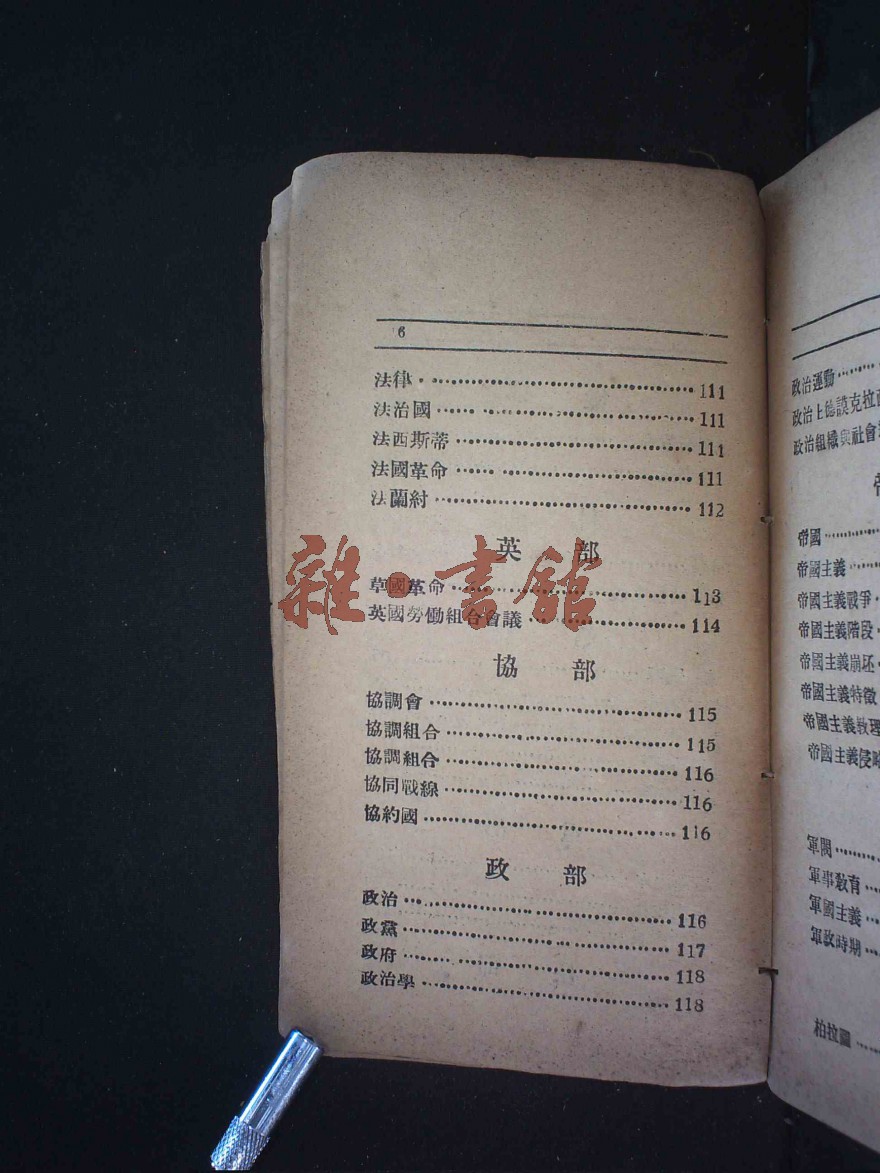 6
法律 111
法治國 111
法西斯蒂 111
法國革命 111
法蘭紂 112
英 部
草國革命 113
英國勞働組合會議 114
協 部
協調會 115
協調組合 115
協調組合 116
協同戰線 116
協約國 116
政 部
政治 116
政黨 117
政府 118
政治學 118
雜·書舘
政治運動
政治上德謨克拉
政治組織與社會
帝國
帝國主義
帝國主義戰爭
帝國主義階段
帝國主義崩坯
帝國主義特徵
帝國主義教理
帝國主義侵略
軍閥
軍事敎育
軍國主義
軍政時期
柏拉圖